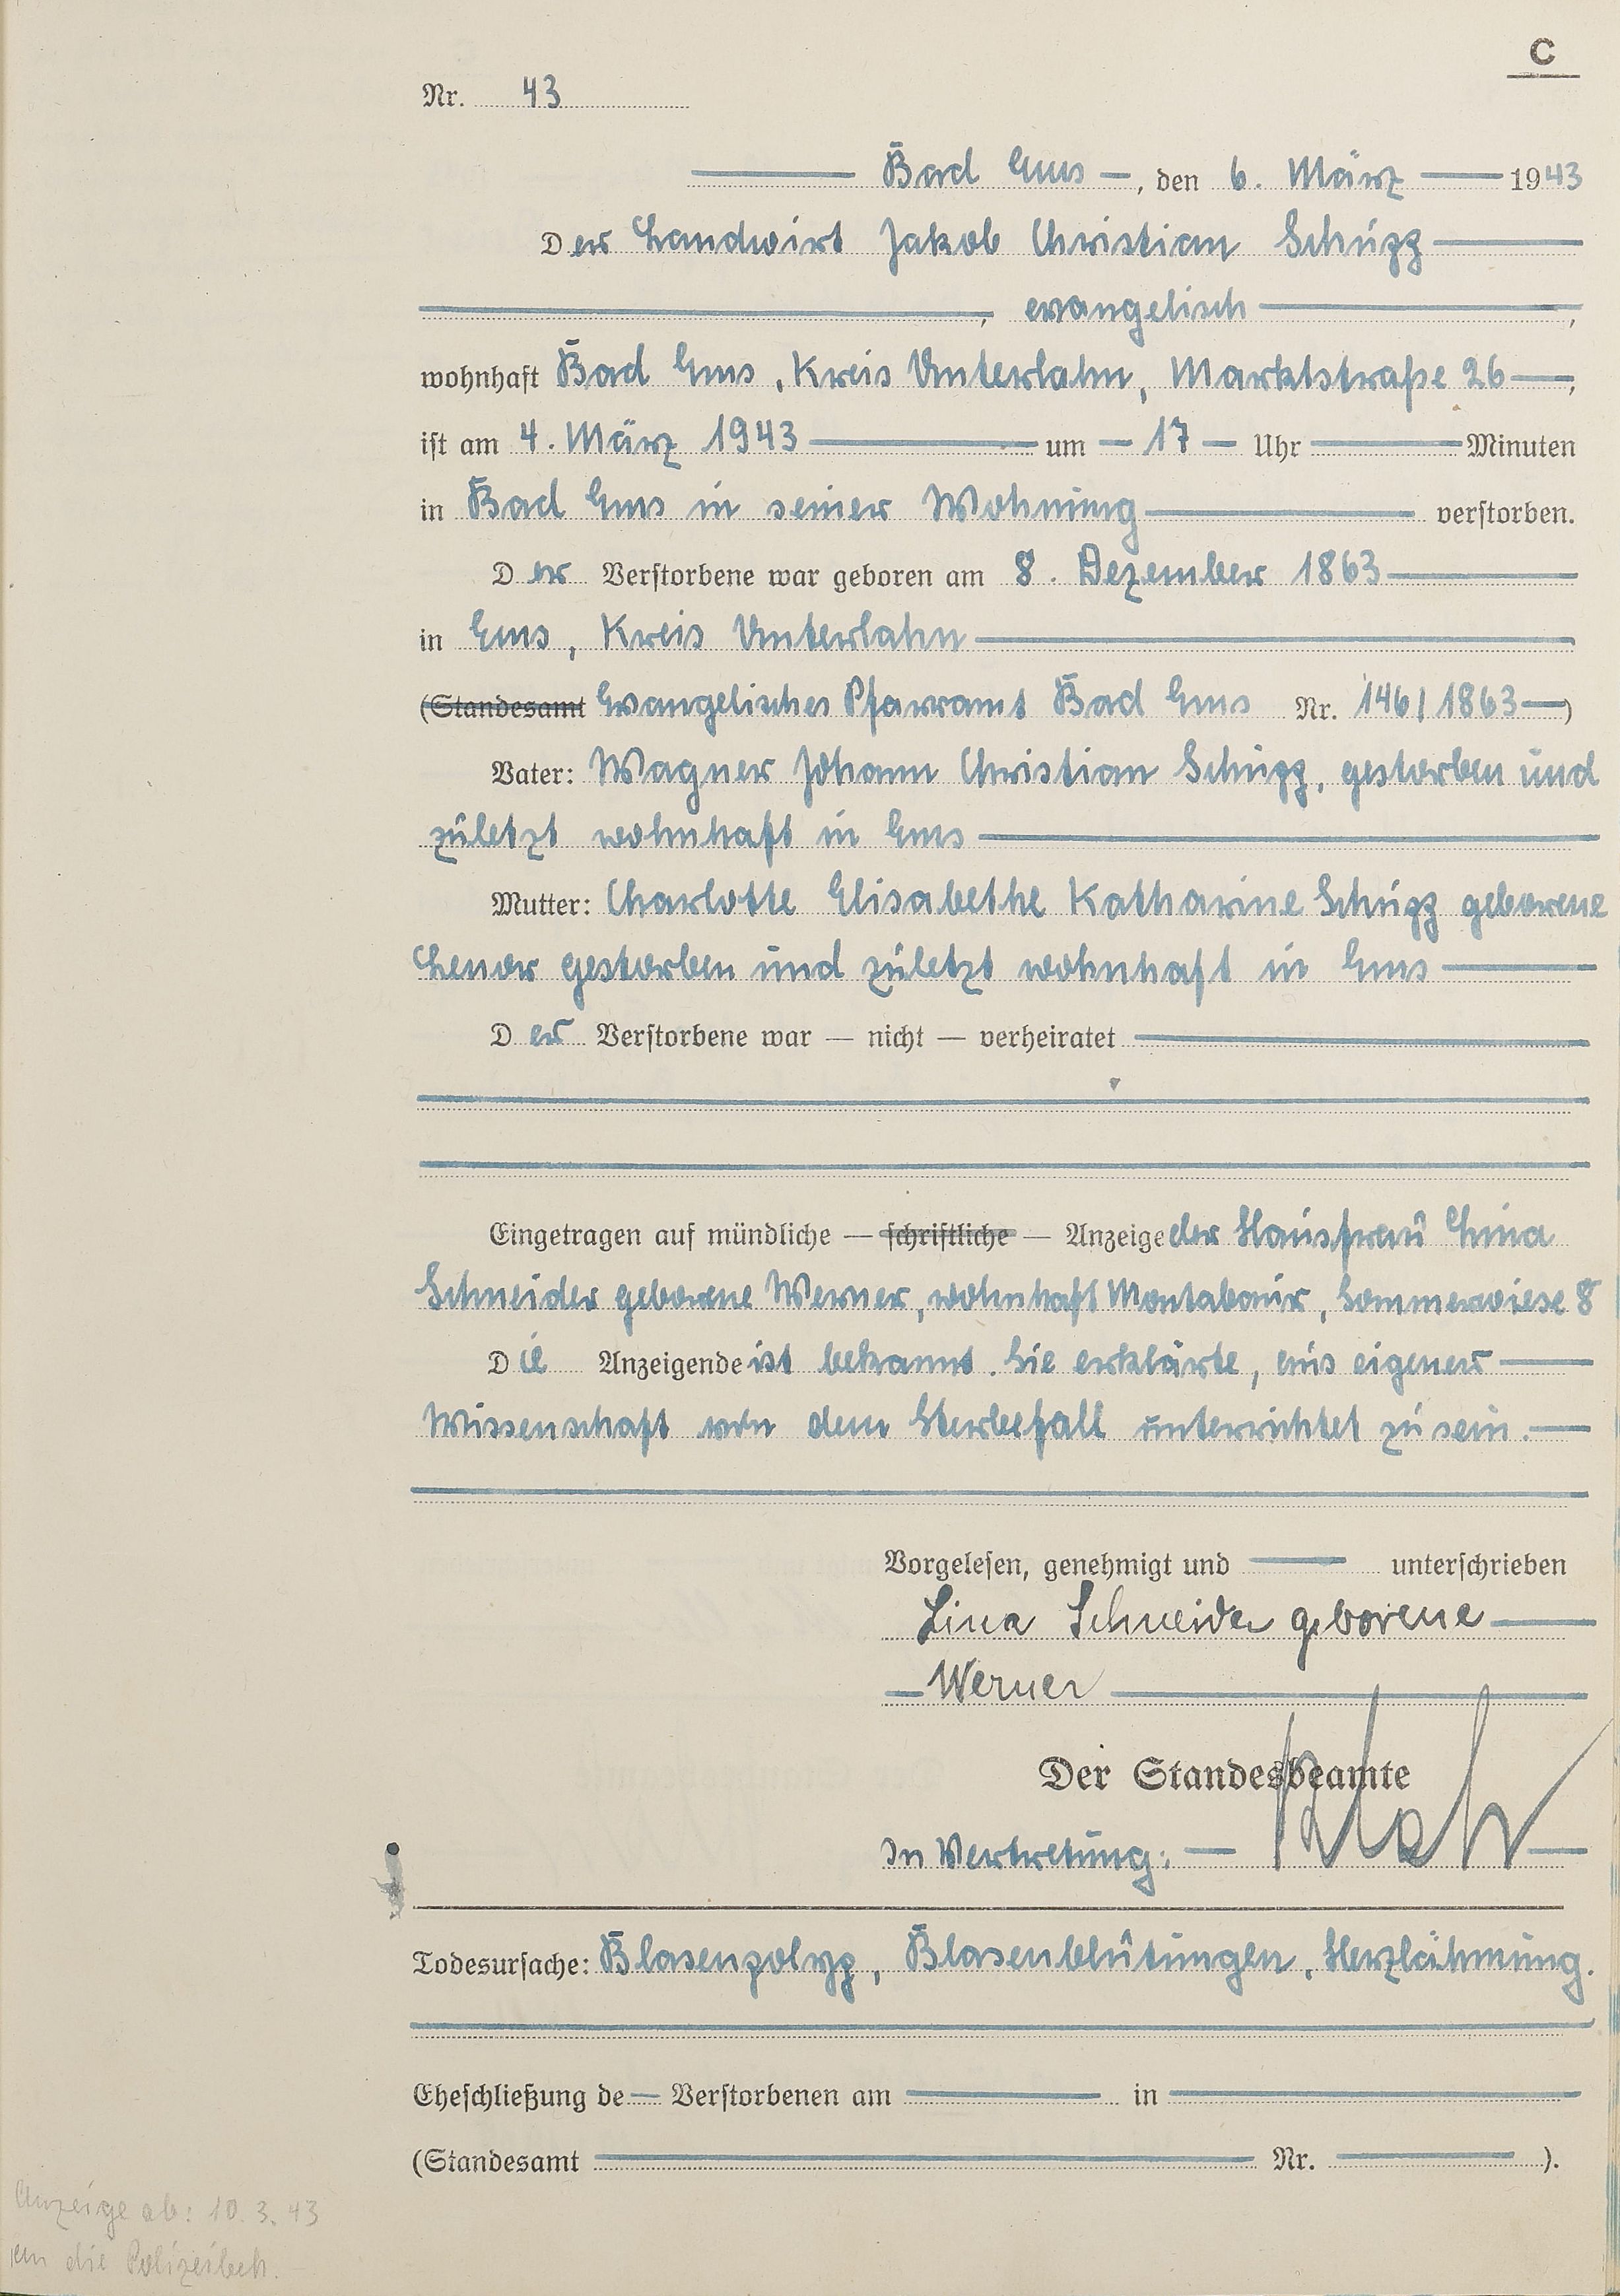 C
Nr. 43
Bad Ems —, den 6. März — 1943
Der Landwirt Jakob Christian Schupp —
—, evangelisch —,
wohnhaft Bad Ems, Kreis Unterlahn, Marktstraße 26 —,
ist am 4. März 1943 — um — 17 — Uhr — Minuten
in Bad Ems in seiner Wohnung — verstorben.
Der Verstorbene war geboren am 8. Dezember 1863 —
in Ems, Kreis Unterlahn —
(Standesamt Evangelisches Pfarramt Bad Ems Nr. 146/1863 —)
Vater: Wagner Johann Christian Schupp, gestorben und
zuletzt wohnhaft in Ems —
Mutter: Charlotte Elisabethe Katharine Schupp geborene
Lenor gestorben und zuletzt wohnhaft in Ems —
Der Verstorbene war — nicht — verheiratet —
Eingetragen auf mündliche — schriftliche — Anzeige der Hausfrau Lina
Schneider geborene Werner, wohnhaft Montabaur, Sommerwiese 8
Die Anzeigende ist bekannt. Sie erklärte, aus eigener —
Wissenschaft von dem Sterbefall unterrichtet zu sein. —
Vorgelesen, genehmigt und — unterschrieben
Lina Schneider geborene —
— Werner —
Der Standesbeamte
In Vertretung: —
Todesursache: Blasenpolyp, Blasenblutungen, Herzlähmung.
Eheschließung de — Verstorbenen am — in —
(Standesamt — Nr. —).
Anzeige ab: 10.3.43
an die Polizeibeh.